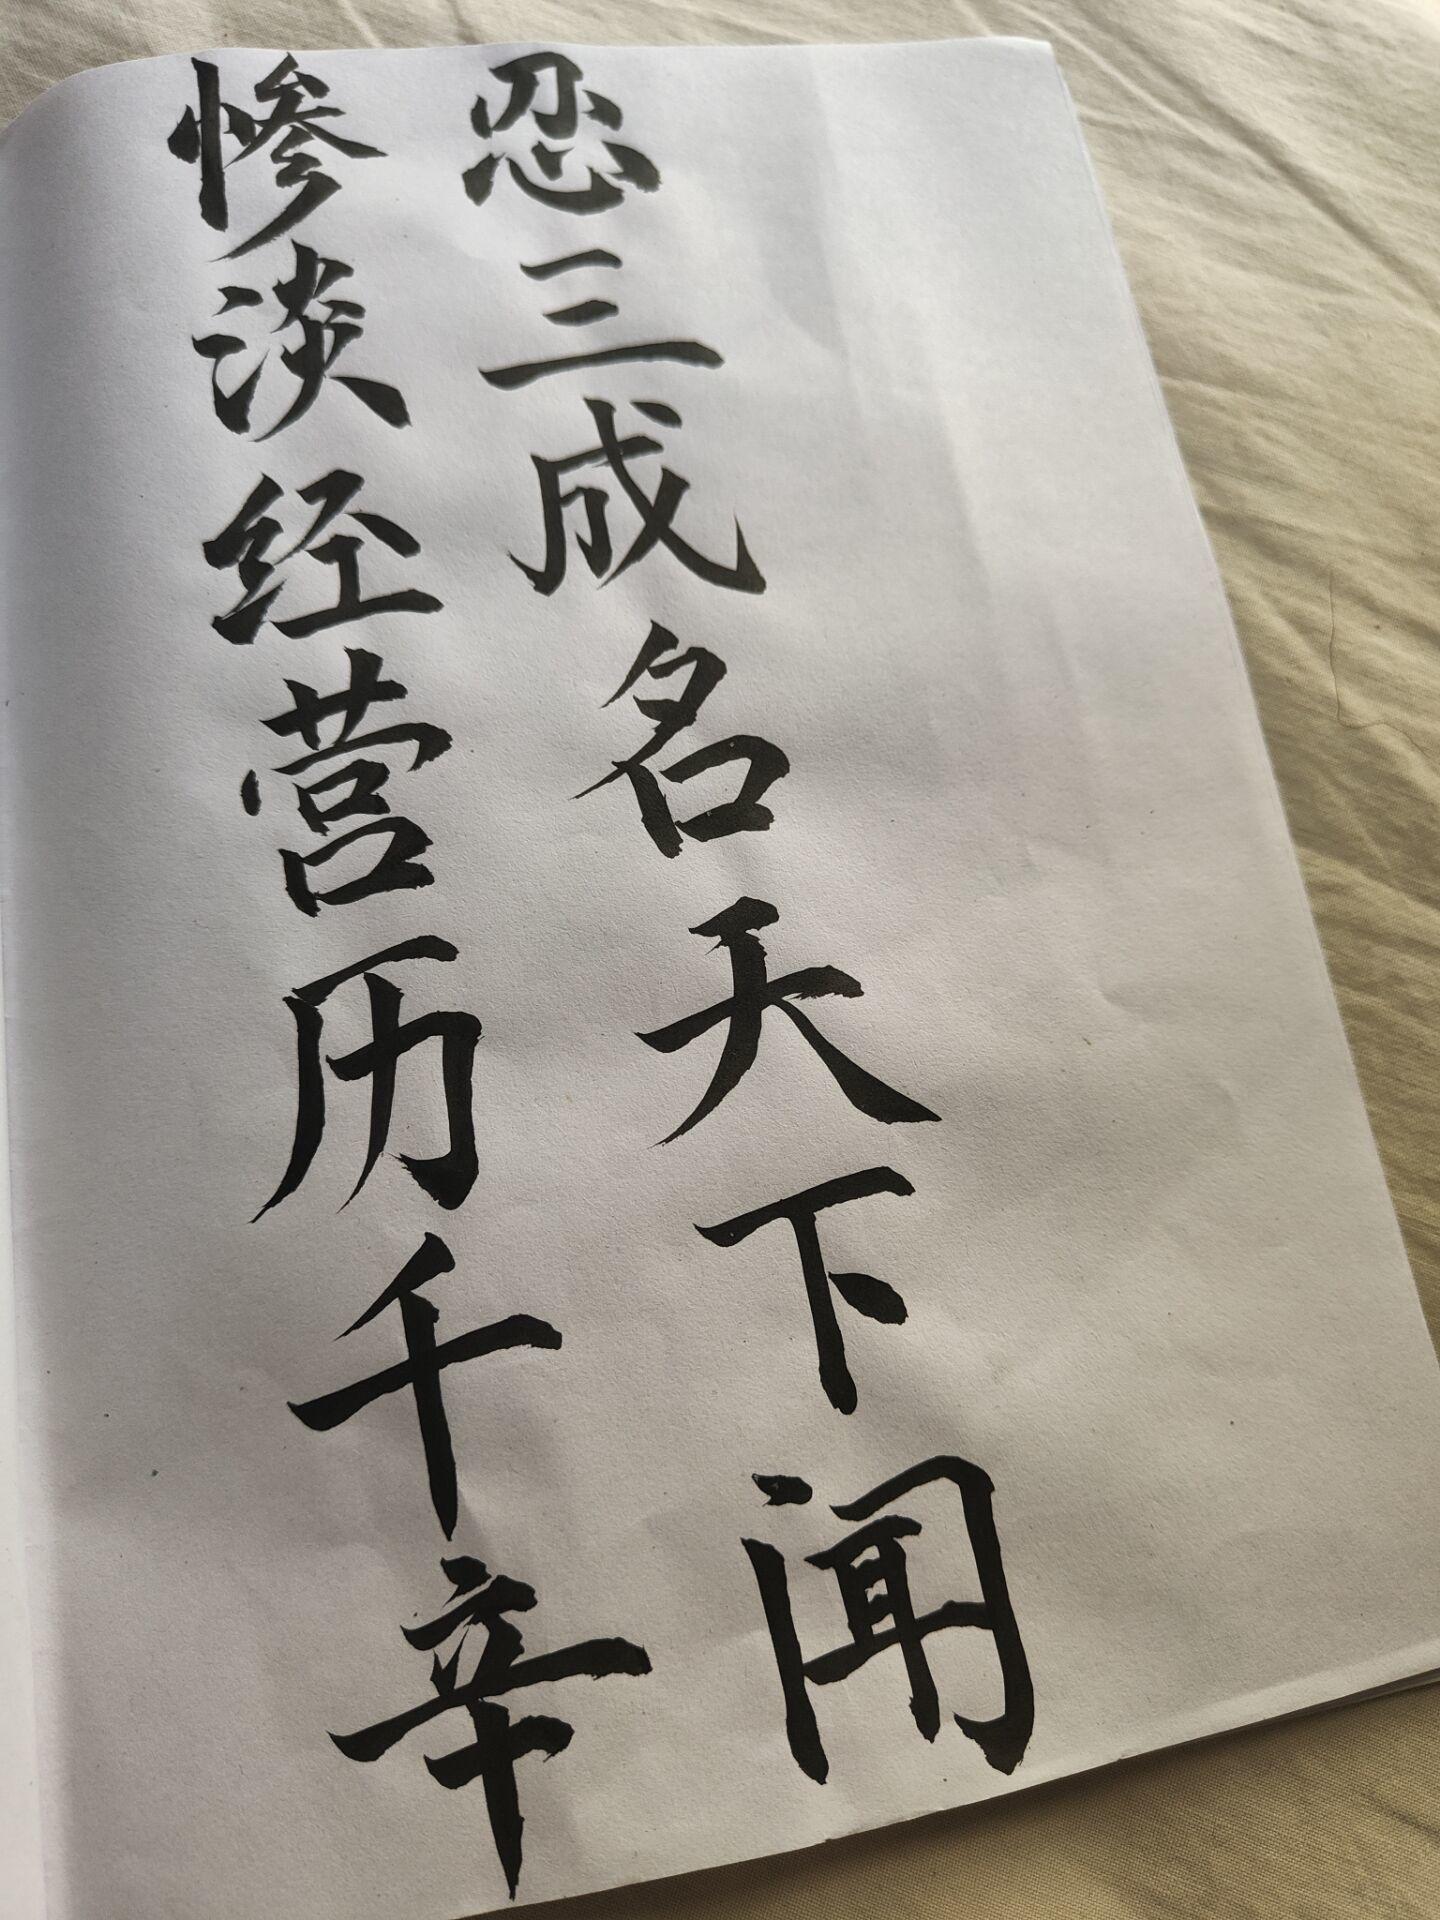 忍三成名天下闻
惨淡经营历千辛